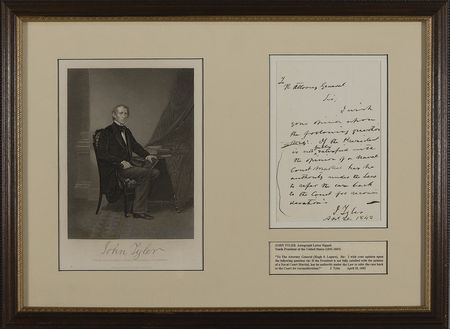 John Tyler
To
The Attorney General
Sir,
I wish
your opinion upon
the following question
If the President
is not fully satisfied with
the opinion of a Naval
Court Martial has he
authority under the Law
to refer the case back
to the Court for recon-
sideration?
J. Tyler
1842
JOHN TYLER. Autograph Letter Signed
Tenth President of the United States (1841-1845)
"To The Attorney General (Hugh S. Legare), Sir: I wish your opinion upon
the following question viz: If the President is not fully satisfied with the opinion
of a Naval Court Martial, has he authority under the Law to refer the case back
to the Court for reconsideration?" J. Tyler April 20, 1842